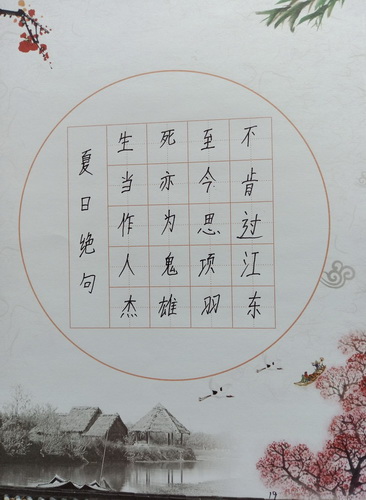 夏日绝句
生当作人杰
死亦为鬼雄
至今思项羽
不肯过江东
19